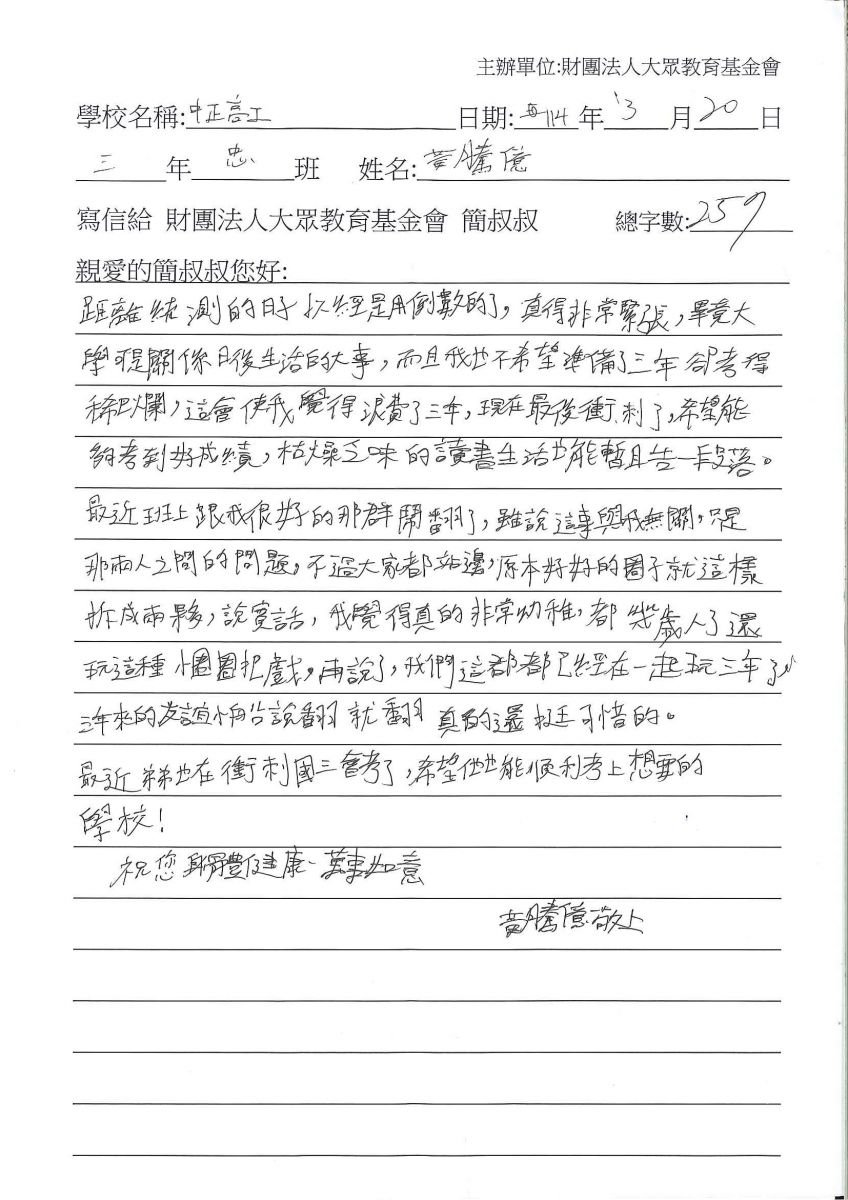 主辦單位:財團法人大眾教育基金會
學校名稱:中正高工 日期:114年3月20日
三年忠班 姓名:黃騰億
寫信給 財團法人大眾教育基金會 簡叔叔 總字數:259
親愛的簡叔叔您好:
距離統測的日子以經是用倒數的了,真得非常緊張,畢竟大
學可是關係日後生活的大事,而且我也不希望準備了三年卻考得
稀巴爛,這會使我覺得浪費了三年,現在最後衝刺了,希望能
夠考到好成績,枯燥乏味的讀書生活也能暫且告一段落。
最近班上跟我很好的那群鬧翻了,雖說這事與我無關,只是
那兩人之間的問題,不過大家都站邊,原本好好的圈子就這樣
拆成兩夥,說實話,我覺得真的非常幼稚,都幾歲人了還
玩這種小圈圈把戲,再說了,我們這群都已經在一起玩三年了,
三年來的友誼恰說翻就翻真的還挺可惜的。
最近弟弟也在衝刺國三會考了,希望他也能順利考上想要的
學校!
祝您身體健康、萬事如意
黃騰億敬上